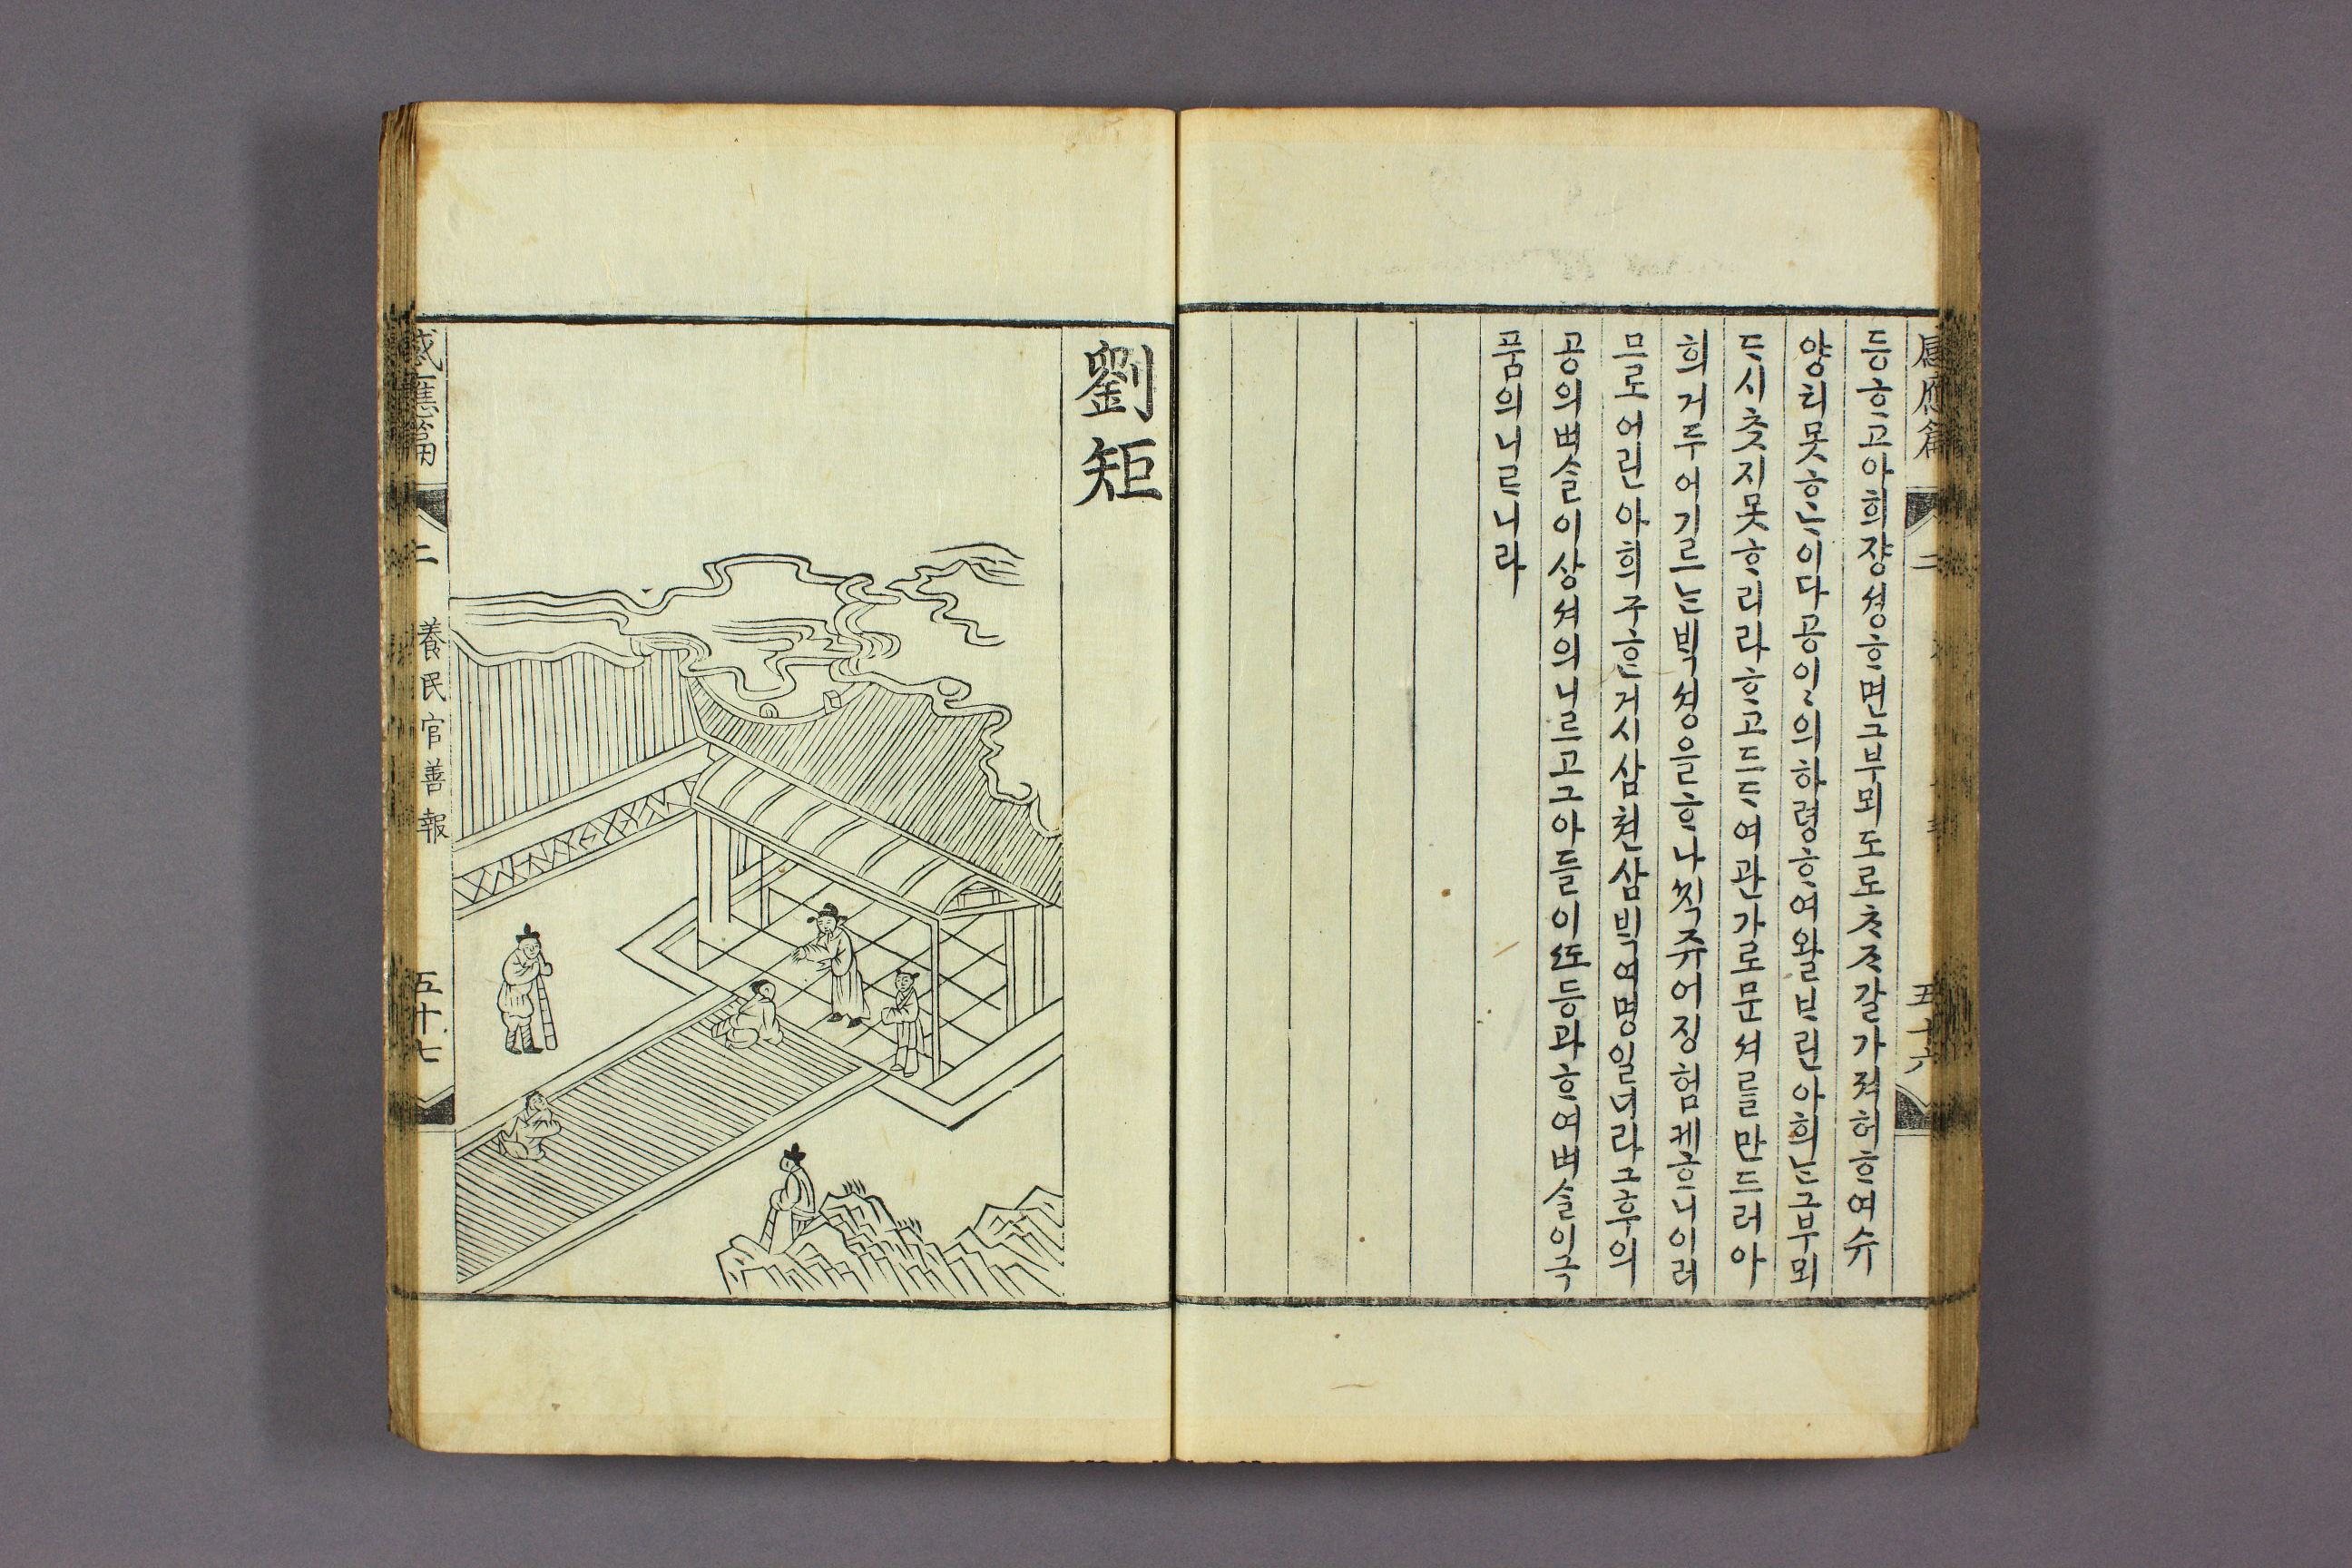 感應篇 二 五十六
등ᄒᆞ고아희쟝셩ᄒᆞ면그부뫼도로ᄎᆞᄌᆞ갈가져허ᄒᆞ여슈
양치못ᄒᆞᄂᆞ이다공이〻의하령ᄒᆞ여왈ᄇᆞ린아희ᄂᆞᆫ그부뫼
ᄃᆞ시ᄎᆞᆺ지못ᄒᆞ리라ᄒᆞ고드ᄃᆞ여관가로문셔ᄅᆞᆯ만드러아
희거두어기르ᄂᆞᆫᄇᆡᆨ셩을ᄒᆞ나쥬어징험케ᄒᆞ니이러
므로어린아희구ᄒᆞᆫ거시삼쳔삼ᄇᆡᆨ여명일너라그후의
공의벼슬이상셔의니르고그아들이ᄯᅩ등과ᄒᆞ여벼슬이극
품의니르니라
劉矩
感應篇 二 養民官善報 五十七